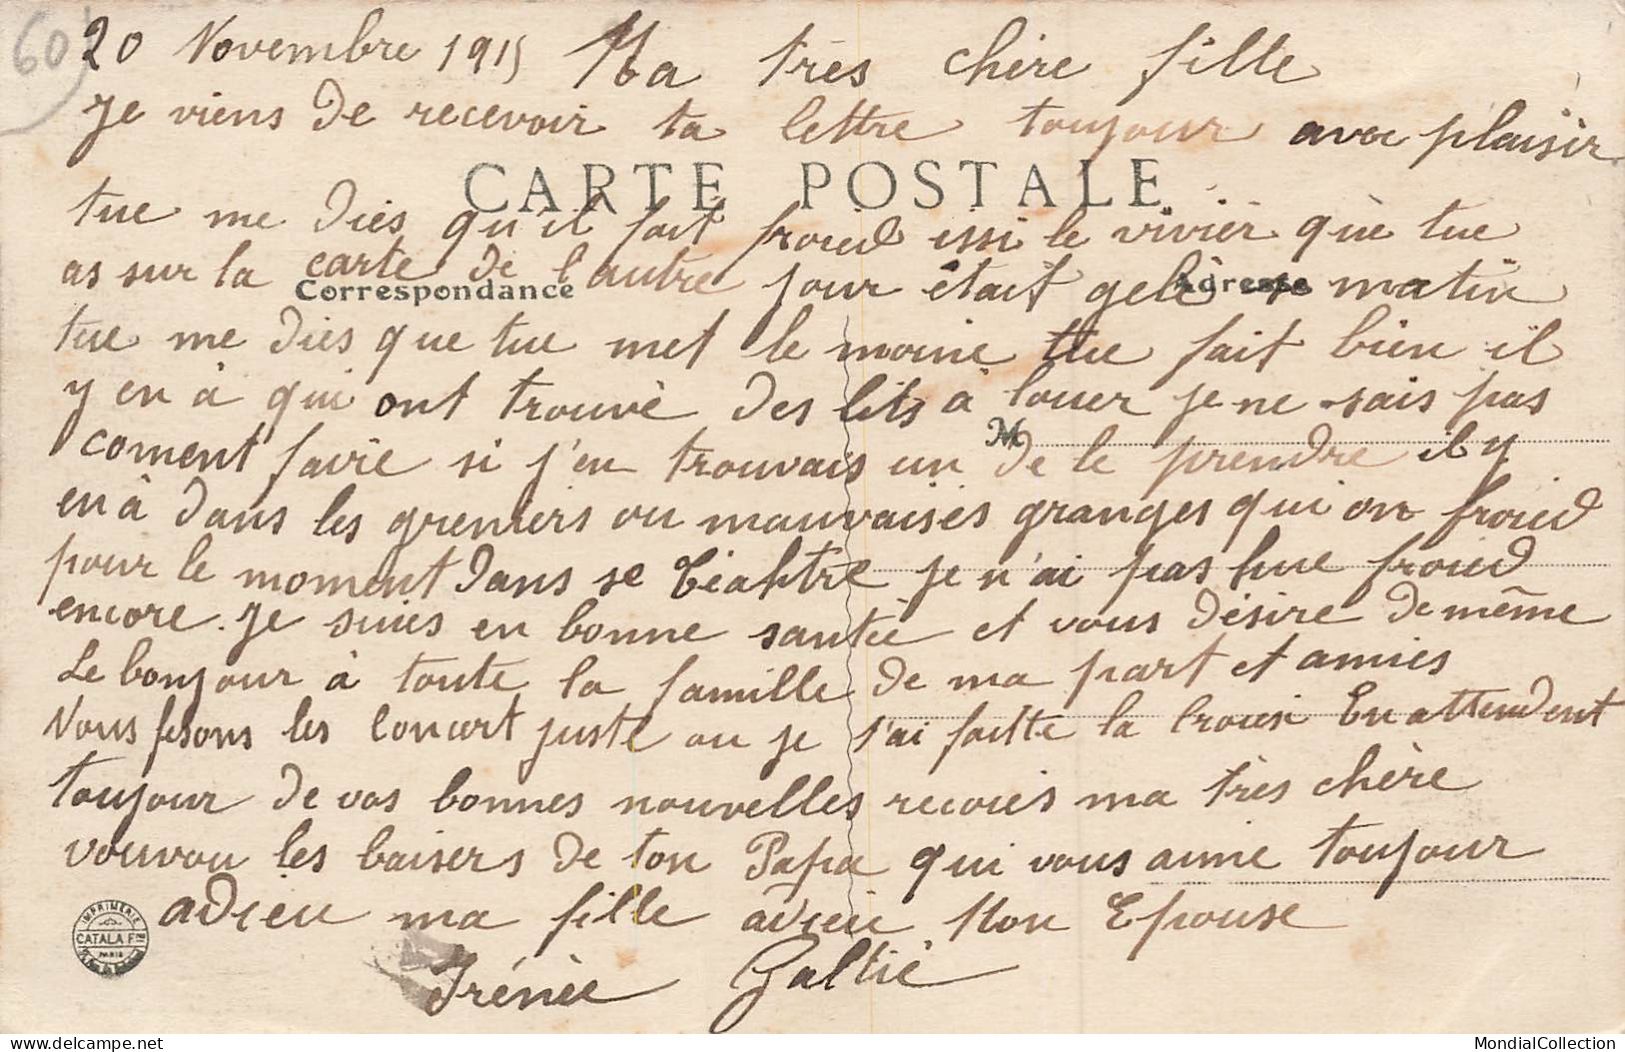 60
20 Novembre 1915 Ma très chère fille
Je viens de recevoir ta lettre toujour avec plaisir
CARTE POSTALE
tue me dies qu'il fait froied issi le vivièr què tue
as sur la carte de l'autre jour ètait gelè se matin
Correspondance
Adresse
tue me dies que tue met le moine tue fait bien il
y en à qui ont trouvè des lits à louer je ne sais pas
M
coment faire si j'en trouvais un de le prendre il y
en à dans les greniers ou mauvaises granges qui on froied
pour le moment dans se téahtre je n'ai pas hue froied
encore. Je suies en bonne santèe et vous désire de même
Le bonjour à toute la famille de ma part et amies
Nous fesons les concert juste ou je j'ai faitte la croiex En attendent
toujour de vos bonnes nouvelles recoies ma très chère
vouvou les baisers de ton Papa qui vous aime toujour
adieu ma fille adieu Mon Epouse
Irénèe Galtiè
IMPRIMERIE
CATALA Fres
PARIS
MondialCollection